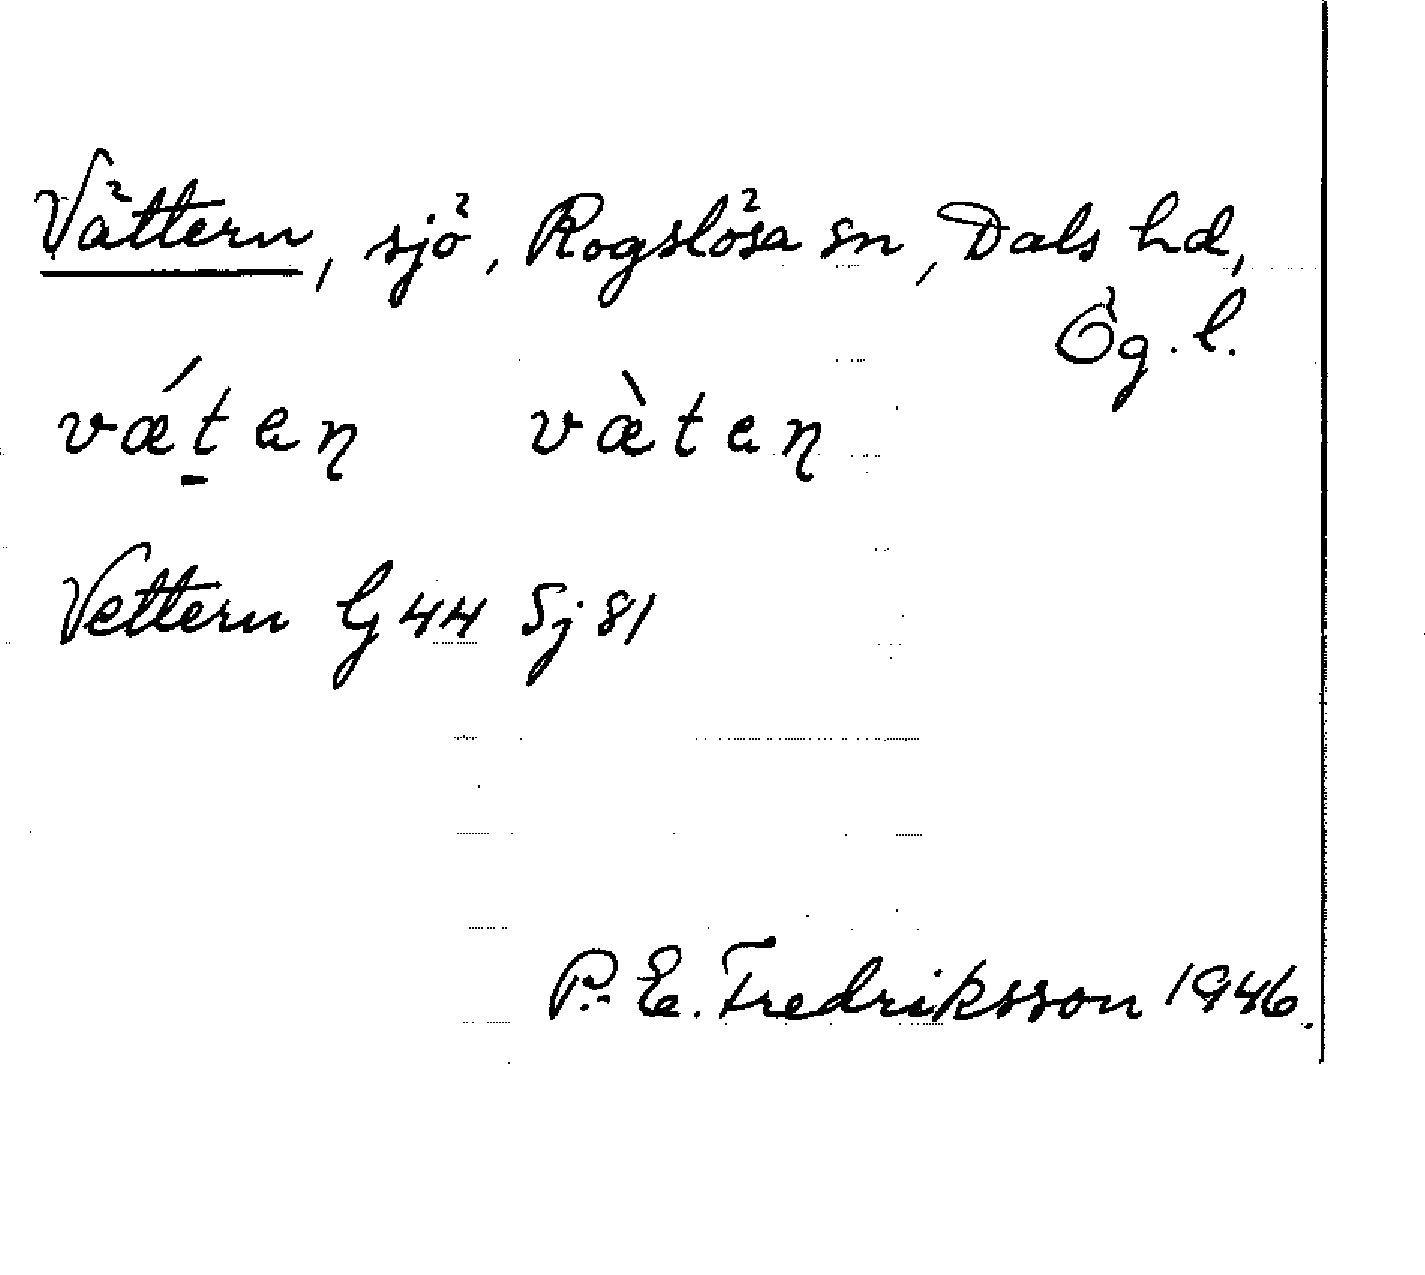 Vättern, sjö, Rogslösa sn, Dals hd,
Ög. l.
vǽṯeɳ væ̀teɳ
Vettern G 44 Sj 81
P.E. Fredriksson 1946.